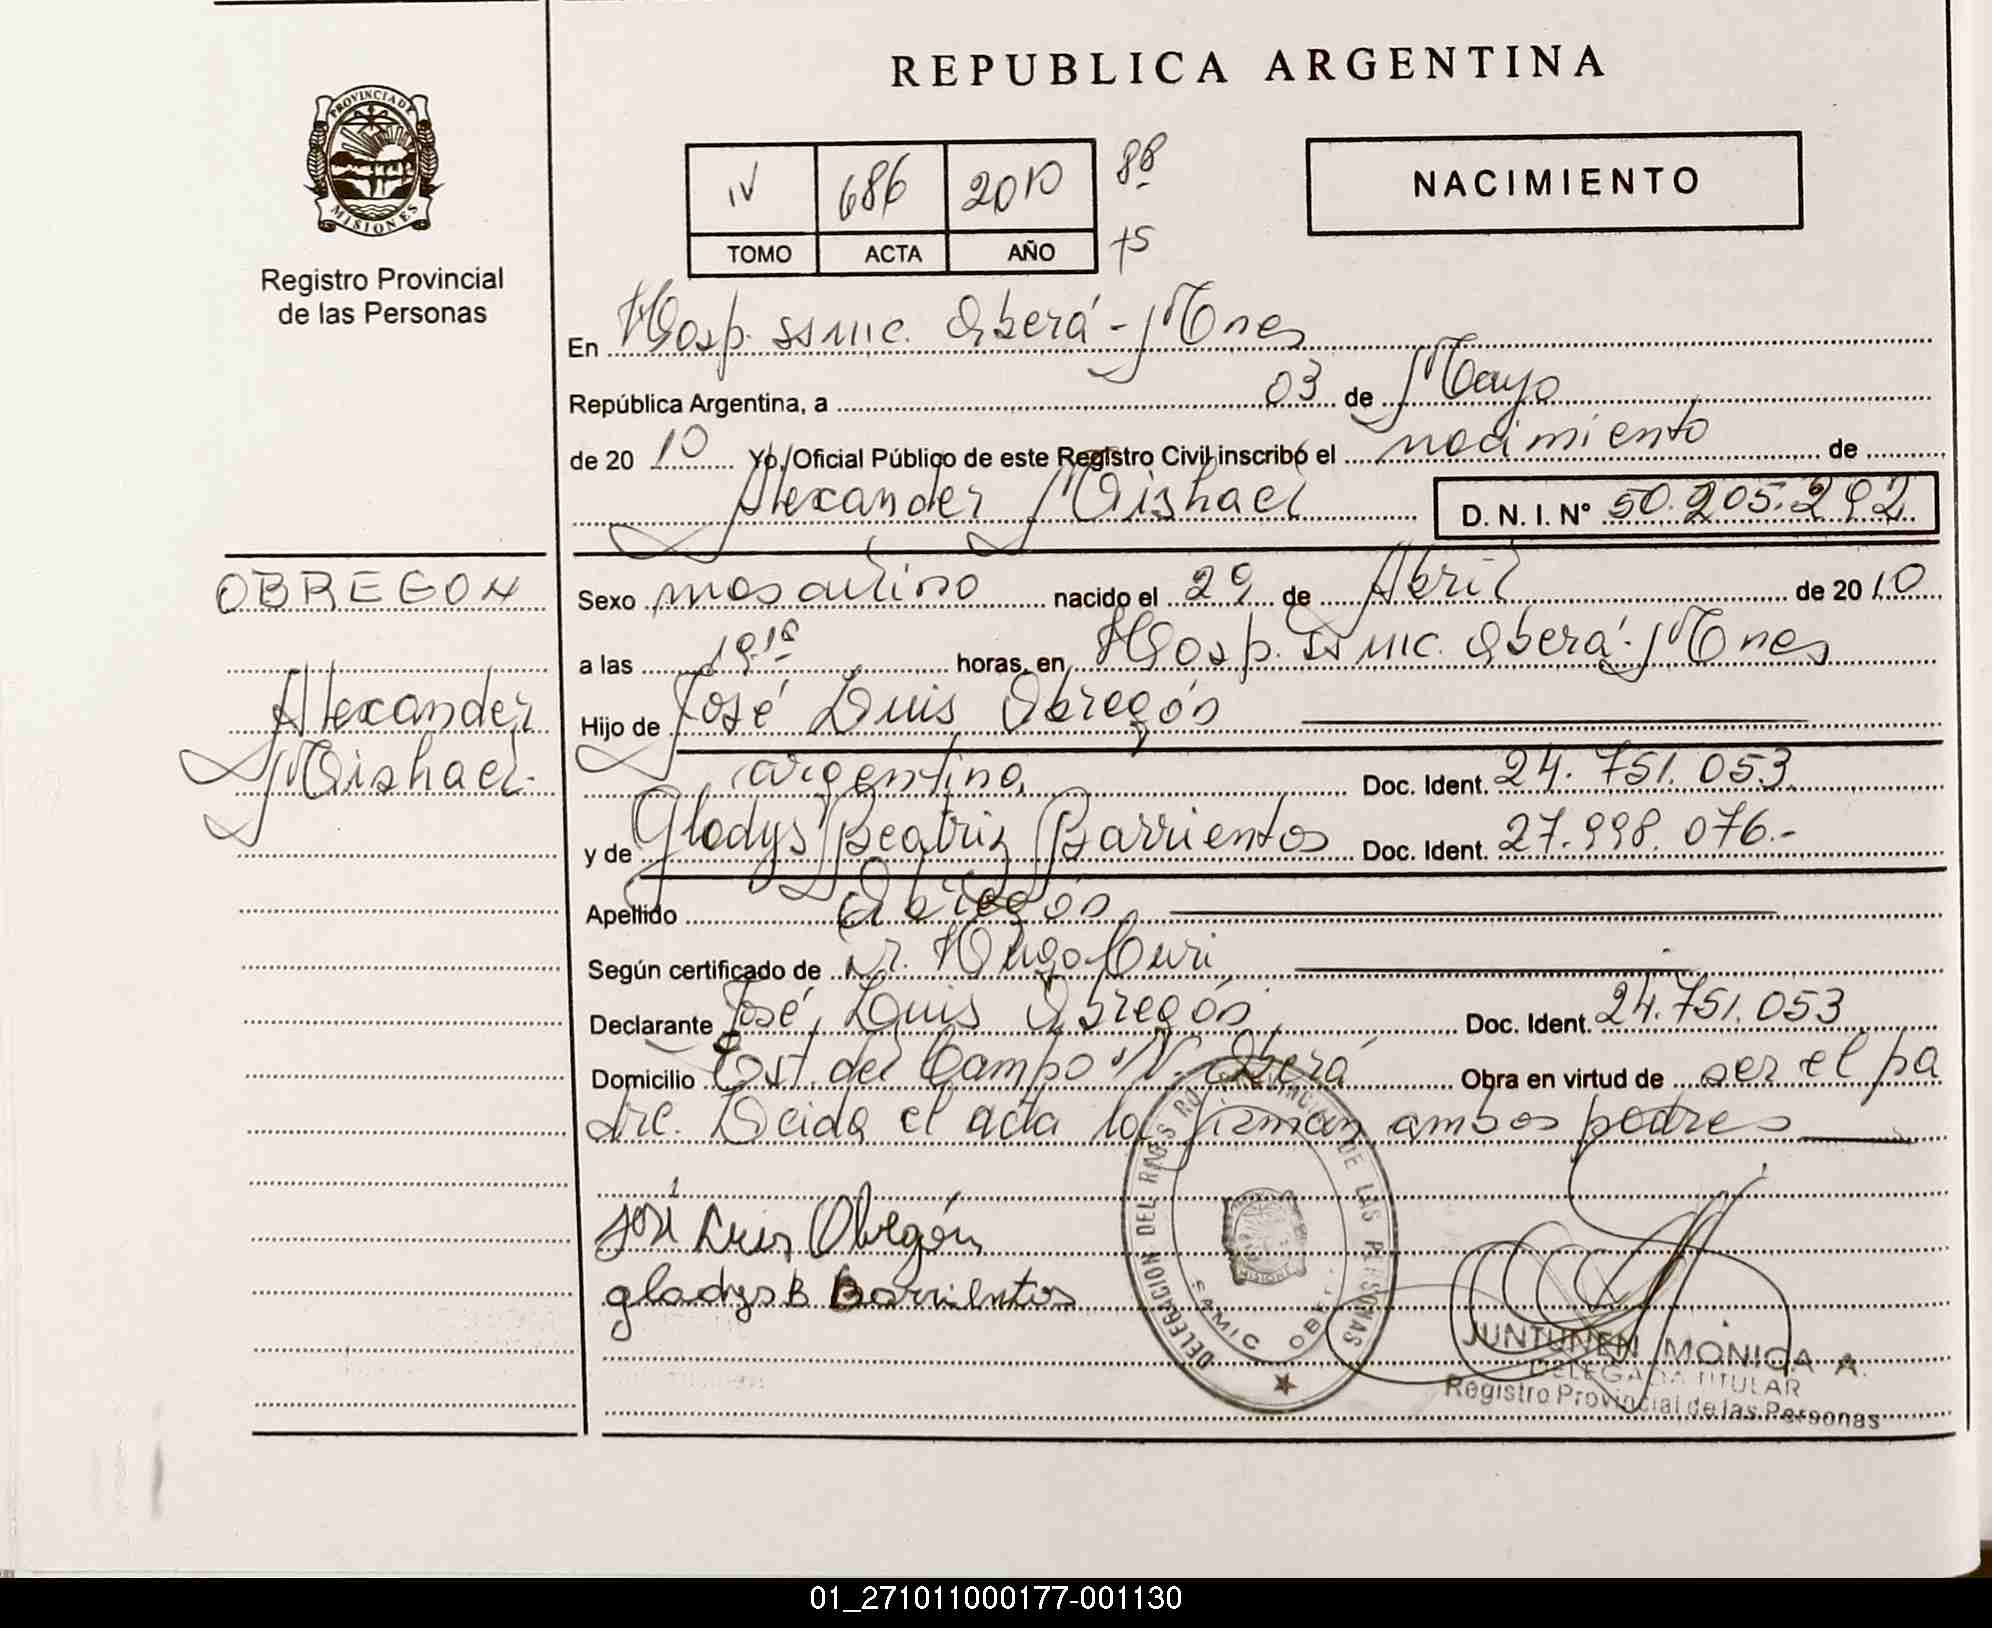 REPUBLICA ARGENTINA
PROVINCIA DE
MISIONES
Registro Provincial
de las Personas
IV 686 2010
TOMO ACTA AÑO
88
75
NACIMIENTO
En Hosp. ssmic. Oberá - Mnes
República Argentina, a 03 de Mayo
de 20 10 Yo, Oficial Público de este Registro Civil inscribó el nacimiento de
Alexander Mishael D. N. I. N° 50.205.292
OBREGON
Alexander
Mishael.
Sexo masculino nacido el 29 de Abril de 20 10
a las 19.18 horas, en Hosp. ssmic. Oberá - Mnes
Hijo de José Luis Obregón
argentino, Doc. Ident. 24.751.053.
y de Gladys Beatriz Barrientos Doc. Ident. 27.998.076.-
Apellido Obregón
Según certificado de Dr. Hugo
Declarante José Luis Obregón Doc. Ident. 24.751.053
Domicilio Est. del Campo N. Oberá Obra en virtud de ser el pa
dre. Leida el acta la firman ambos padres
José Luis Obregón
gladys B Barrientos
DELEGACION DEL PROVINCIAL DE LAS PERSONAS
SAMIC OBERA
JUNTUNEN MONICA A.
DELEGADA TITULAR
Registro Provincial de las Personas
01_271011000177-001130